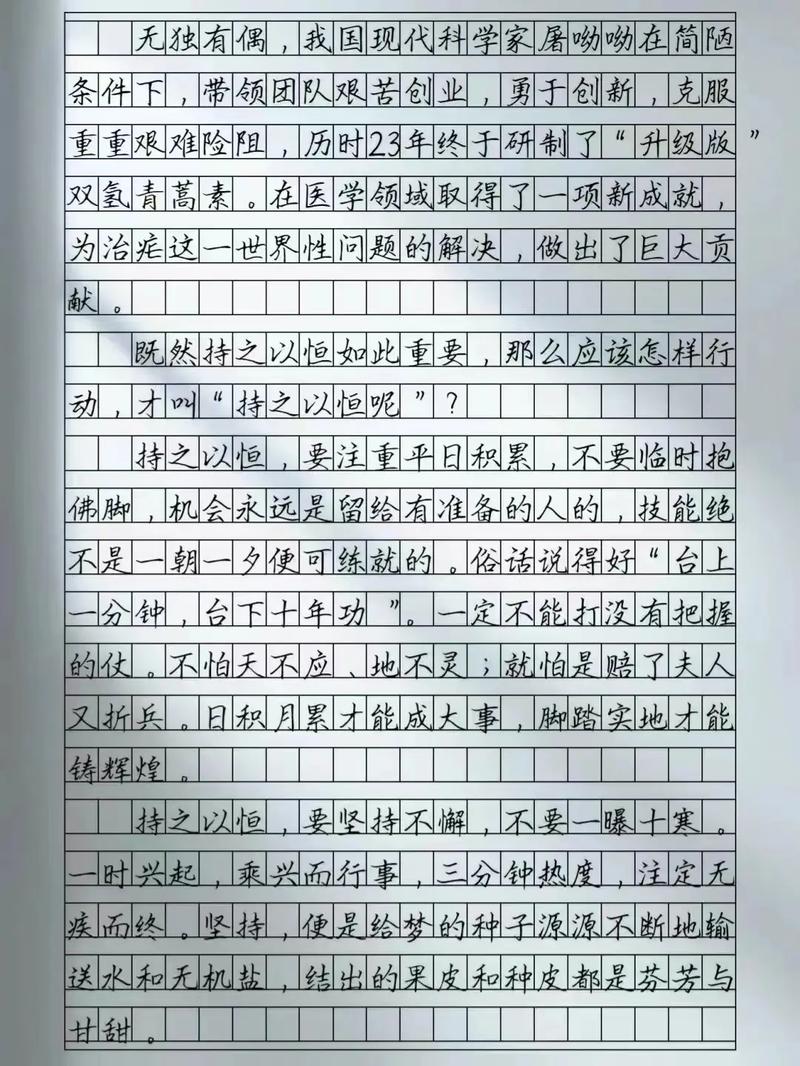 无独有偶，我国现代科学家屠呦呦在简陋
条件下，带领团队艰苦创业，勇于创新，克服
重重艰难险阻，历时23年终于研制了“升级版”
双氢青蒿素。在医学领域取得了一项新成就，
为治疟这一世界性问题的解决，做出了巨大贡
献。
既然持之以恒如此重要，那么应该怎样行
动，才叫“持之以恒呢”？
持之以恒，要注重平日积累，不要临时抱
佛脚，机会永远是留给有准备的人的，技能绝
不是一朝一夕便可练就的。俗话说得好“台上
一分钟，台下十年功”。一定不能打没有把握
的仗。不怕天不应、地不灵；就怕是赔了夫人
又折兵。日积月累才能成大事，脚踏实地才能
铸辉煌。
持之以恒，要坚持不懈，不要一曝十寒。
一时兴起，乘兴而行事，三分钟热度，注定无
疾而终。坚持，便是给梦的种子源源不断地输
送水和无机盐，结出的果皮和种皮都是芬芳与
甘甜。